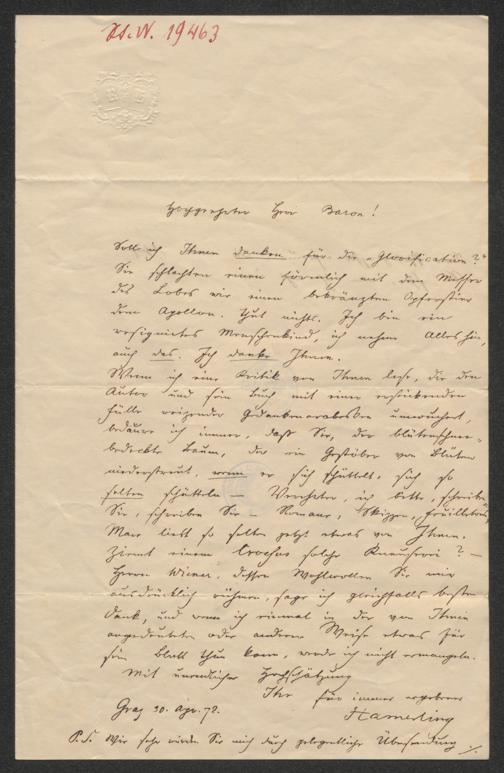 H.I.N. 19463
Hochgeehrter Herr Baron!
Soll ich Ihnen danken für die „Glorification?“
Sie schlachten einen förmlich mit dem Messer
des Lobes wie einen bekränzten Opferstier
dem Apollon. Thut nichts. Ich bin ein
resignirtes Menschenkind, ich nehme Alles hin,
auch das. Ich danke Ihnen.
Wenn ich eine Kritik von Ihnen lese, die den
Autor und sein Buch mit einer erstickenden
Fülle reizender Gedankenarabesken umwuchert,
bedaure ich immer, daß Sie, der blütenschnee-
bedeckte Baum, der ein Gestöber von Blüten
niederstreut, wenn er sich schüttelt, sich so
selten schütteln — Verehrter, ich bitte, schreiben
Sie, schreiben Sie — Romane, Skizzen, Feuilletons
Man liest so selten jetzt etwas von Ihnen.
Ziemt einem Crösus solche Knauserei? —
Herrn Wiener, dessen Wohlwollen Sie mir
ausdrücklich rühmen, sage ich gleichfalls besten
Dank, und wenn ich einmal in der von Ihnen
angedeuteten oder anderer Weise etwas für
sein Blatt thun kann, werde ich nicht ermangeln.
Mit unendlicher Hochschätzung
Ihr für immer ergebener
Graz 30. Apr. 72. Hamerling
P.S. Wie sehr würden Sie mich durch gelegentliche Übersendung